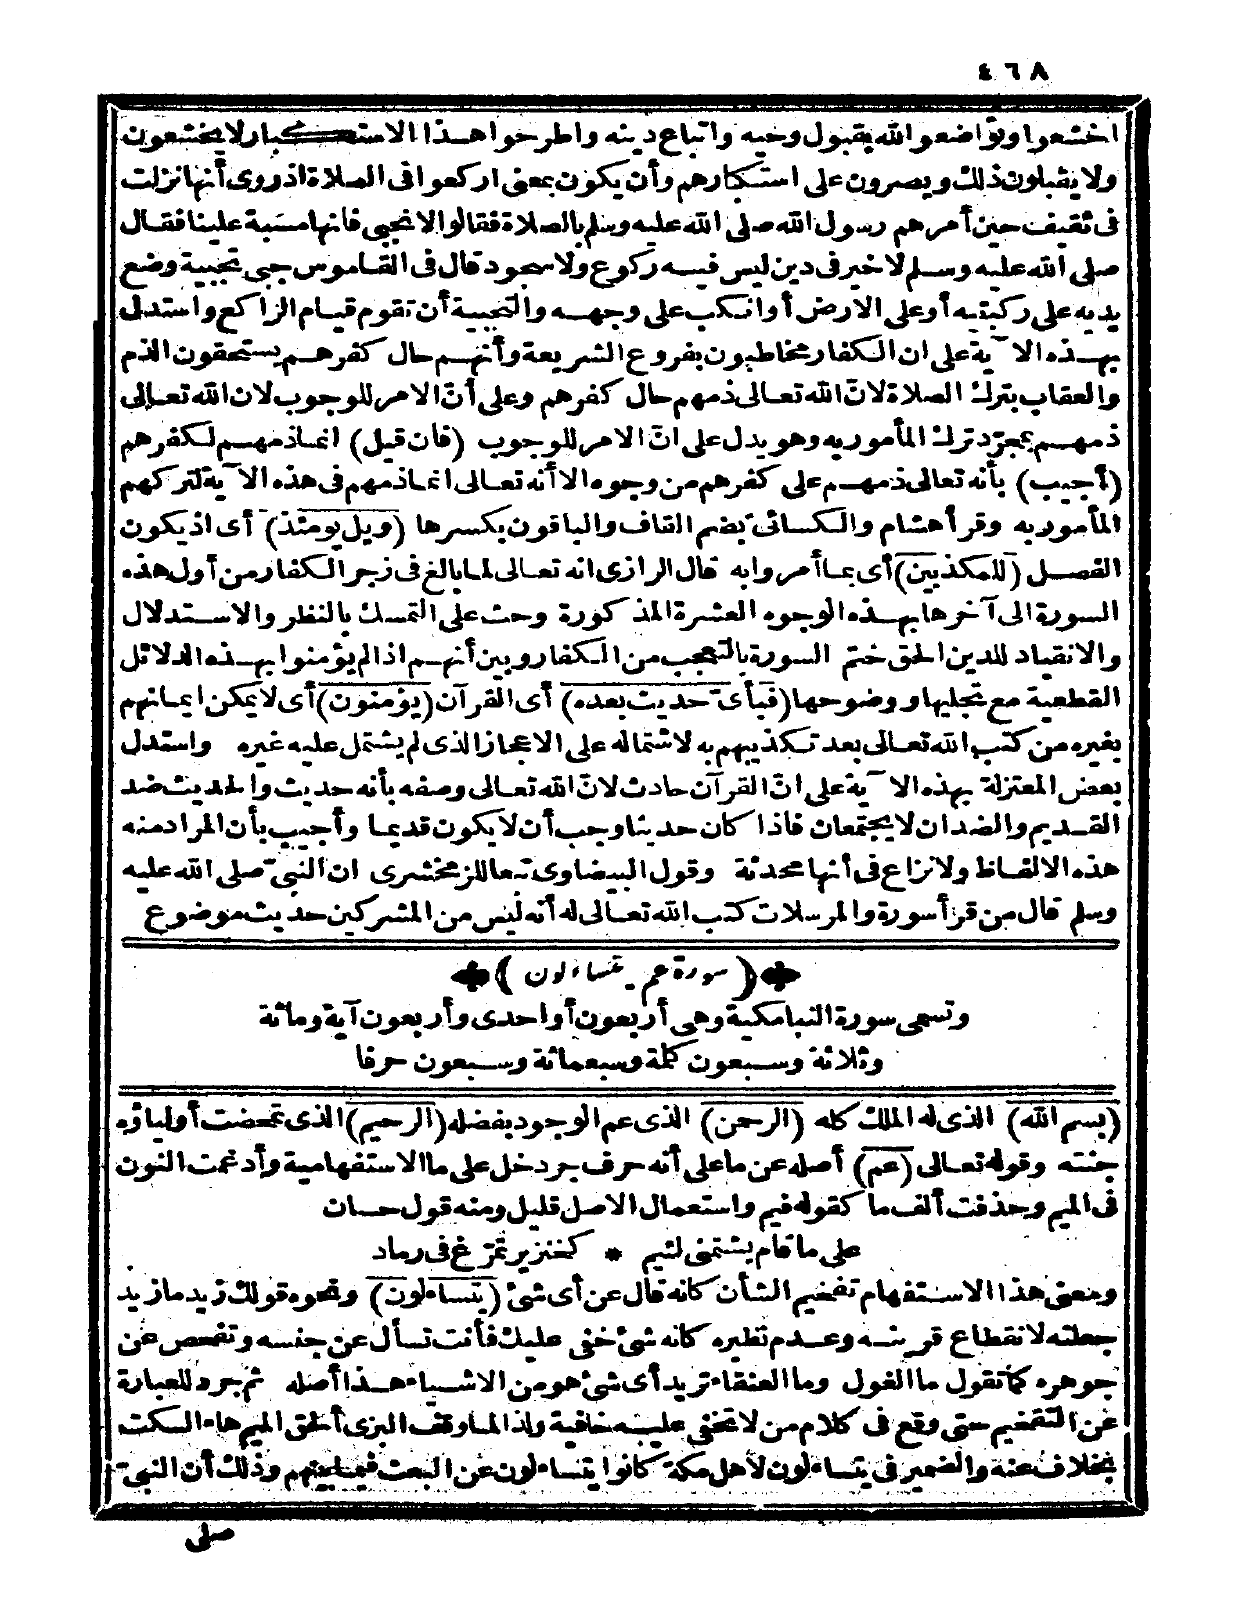 ٤٦٨
اخشعوا وتواضعوا لله بقبول وحيه واتباع دينه واطرحوا هذا الاستكبار لا يخشعون
ولا يقبلون ذلك ويصرون على استكبارهم وأن يكون بمعنى اركعوا فى الصلاة اذ روى أنها نزلت
فى ثقيف حين أمرهم رسول الله صلى الله عليه وسلم بالصلاة فقالوا لا نجبى فانها مسبة علينا فقال
صلى الله عليه وسلم لا خير فى دين ليس فيه ركوع ولا سجود قال فى القاموس جبى تجبية وضع
يديه على ركبتيه أو على الارض أو انكب على وجهه والتجبية أن تقوم قيام الراكع واستدل
بهذه الآية على ان الكفار مخاطبون بفروع الشريعة وأنهم حال كفرهم يستحقون الذم
والعقاب بترك الصلاة لانّ الله تعالى ذمهم حال كفرهم وعلى أنّ الامر للوجوب لان الله تعالى
ذمهم بمجرّد ترك المأمور به وهو يدل على انّ الامر للوجوب (فان قيل) انما ذمهم لكفرهم
(أجيب) بأنه تعالى ذمهم على كفرهم من وجوه الا أنه تعالى انما ذمهم فى هذه الآية لتركهم
المأمور به وقرأ هشام والكسائى بضم القاف والباقون بكسرها (ويل يومئذ) أى اذ يكون
الفصل (للمكذبين) أى بما أمروا به قال الرازى انه تعالى لما بالغ فى زجر الكفار من أول هذه
السورة الى آخرها بهذه الوجوه العشرة المذكورة وحث على التمسك بالنظر والاستدلال
والانقياد للدين الحق ختم السورة بالتعجب من الكفار وبين أنهم اذا لم يؤمنوا بهذه الدلائل
القطعية مع تجليها ووضوحها (فبأىّ حديث بعده) أى القرآن (يؤمنون) أى لا يمكن ايمانهم
بغيره من كتب الله تعالى بعد تكذيبهم به لاشتماله على الاعجاز الذى لم يشتمل عليه غيره واستدل
بعض المعتزلة بهذه الآية على انّ القرآن حادث لانّ الله تعالى وصفه بأنه حديث والحديث ضد
القديم والضدان لا يجتمعان فاذا كان حديثا وجب أن لا يكون قديما وأجيب بأن المراد منه
هذه الالفاظ ولا نزاع فى أنها محدثة وقول البيضاوى تبعا للزمخشرى ان النبىّ صلى الله عليه
وسلم قال من قرأ سورة والمرسلات كتب الله تعالى له أنه ليس من المشركين حديث موضوع
(سورة عم يتساءلون)
وتسمى سورة النبا مكية وهى أربعون أو احدى وأربعون آية ومائة
وثلاثة وسبعون كلمة وسبعمائة وسبعون حرفا
(بسم الله) الذى له الملك كله (الرحمن) الذى عم الوجود بفضله (الرحيم) الذى تمحضت أولياؤه
جنته وقوله تعالى (عم) أصله عن ما على أنه حرف جر دخل على ما الاستفهامية وأدغمت النون
فى الميم وحذفت ألف ما كقوله فيم واستعمال الاصل قليل ومنه قول حسان
على ما قام يشتمنى لئيم * كخنزير تمرّغ فى رماد
ومعنى هذا الاستفهام تفخيم الشأن كانه قال عن أى شئ (يتساءلون) ونحوه قولك زيد ما زيد
جعلته لانقطاع قرينه وعدم نظيره كانه شئ خفى عليك فأنت تسأل عن جنسه وتفحص عن
جوهره كما تقول ما الغول وما العنقاء تريد أى شئ هو من الاشياء هذا أصله ثم جرد للعبارة
عن التفخيم حتى وقع فى كلام من لا تخفى عليه خافية ولذا لما وقف البزى ألحق الميم هاء السكت
بخلاف عنه والضمير فى يتساءلون لاهل مكة كانوا يتساءلون عن البعث فيما بينهم وذلك أن النبىّ
صلى